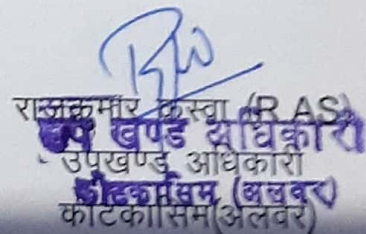 राजकुमार कस्वा (R.A.S)
उप खण्ड अधिकारी
उपखण्ड अधिकारी
कोटकासिम (अलवर)
कोटकासिम(अलवर)